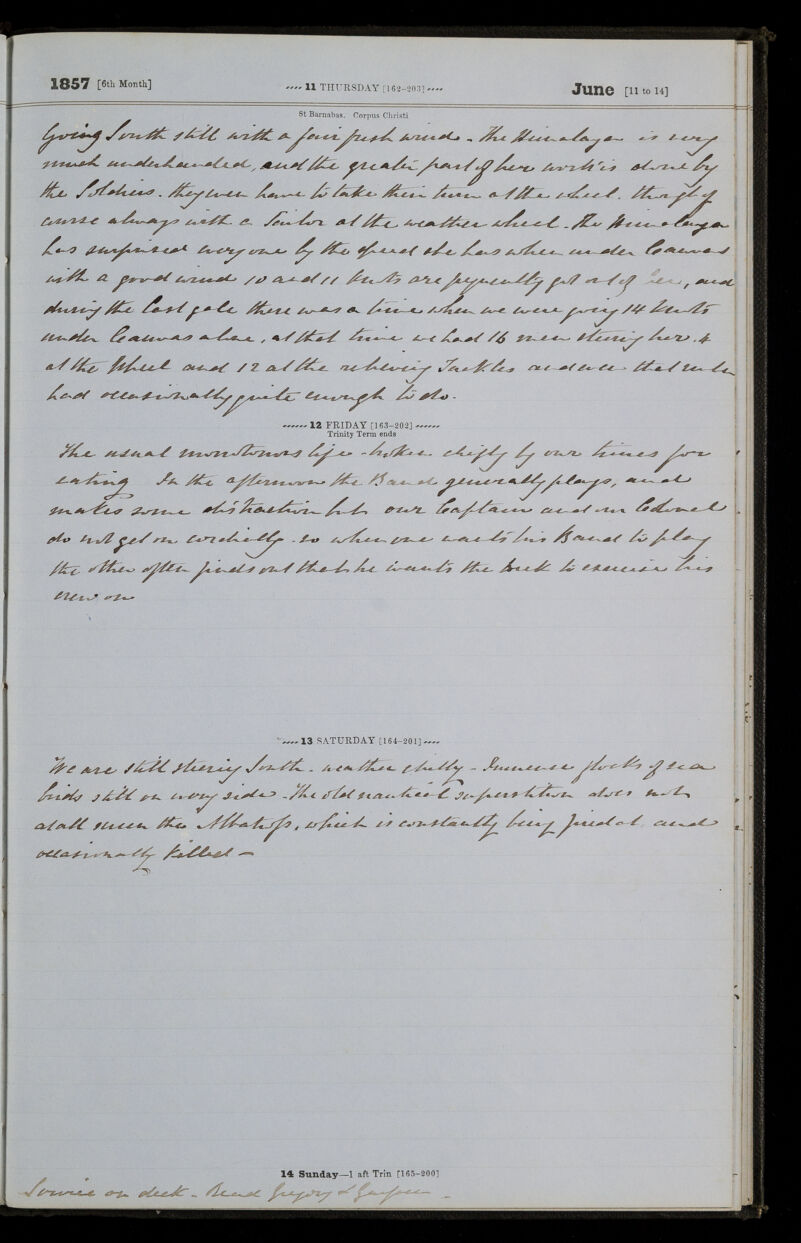 1857 [6th Month] 11 THURSDAY [162-203] June [11 to 14]
St Barnabas. Corpus Christi
Going South still with a fair fresh wind - The Himalaya is very
much underhanded, and the greater part of her work is done by
the Soldiers. they even have to take their turn at the wheel. though of
course always with a Sailor at the weather wheel - The Himalaya
has surprised every one by the speed she has when under Canvas
with a good wind 10 and 11 knots are frequently got out of her, and
during the last gale there was a time when we were going 14 knots
under Canvas alone, at that time we had 16 men steering her. 4
at the Wheel and 12 at the relieving Tackles and even that number
had occasionally quite enough to do.
12 FRIDAY [163-202]
Trinity Term ends
The usual monotonous life - broken chiefly by our times for
eating In the afternoon the Band generally plays, and
makes some distraction but our Captain and our Colonel
do not get on cordially - so when one wants his Band to play
the other often finds out that he wants the deck to exercise his
crew on
13 SATURDAY [164-201]
We are still steering South - weather chilly - Immense flocks of sea
birds still on every side - The old nautical superstition does not
at all the Albatross, which is constantly being fired at and
occasionally killed -
14 Sunday—1 aft Trin [165-200]
Service on deck - Read Gregory &